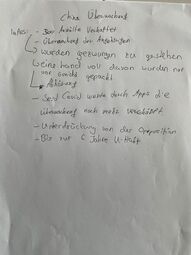 China Überwachung
Infos: - 300 Anwälte Verhaftet
- Überwachung der Angehörigen
→ wurden gezwungen zu gestehen
→ eine hand voll davon wurden nur
vor Gericht gepackt
→ Abhörung
- Seit Covid wurde durch Apps die
Überwachung noch mehr verschärft
- Unterdrückung von der Opposition
- Bis zur 6 Jahre U-Haft